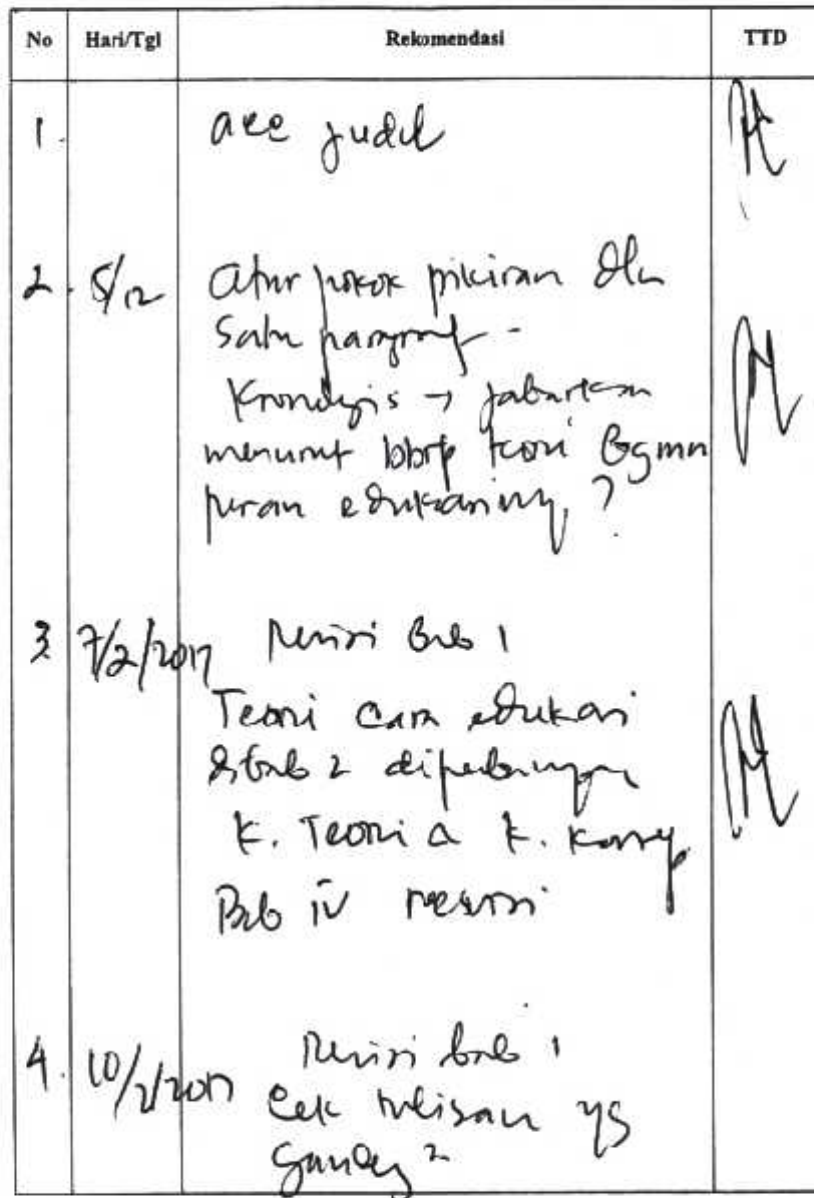 No Hari/Tgl Rekomendasi TTD
1. acc judul
2. 5/12 Atur pokok pikiran dlm
satu paragraf -
Kronologis → jabarkan
menurut bbrp teori bgmn
peran edukasinya ?
3. 7/2/2017 Revisi Bab 1
Teori cara edukasi
di bab 2
K. Teori a K. Konsep
Bab IV revisi
4. 10/2/2017 Revisi bab 1
Cek tulisan yg